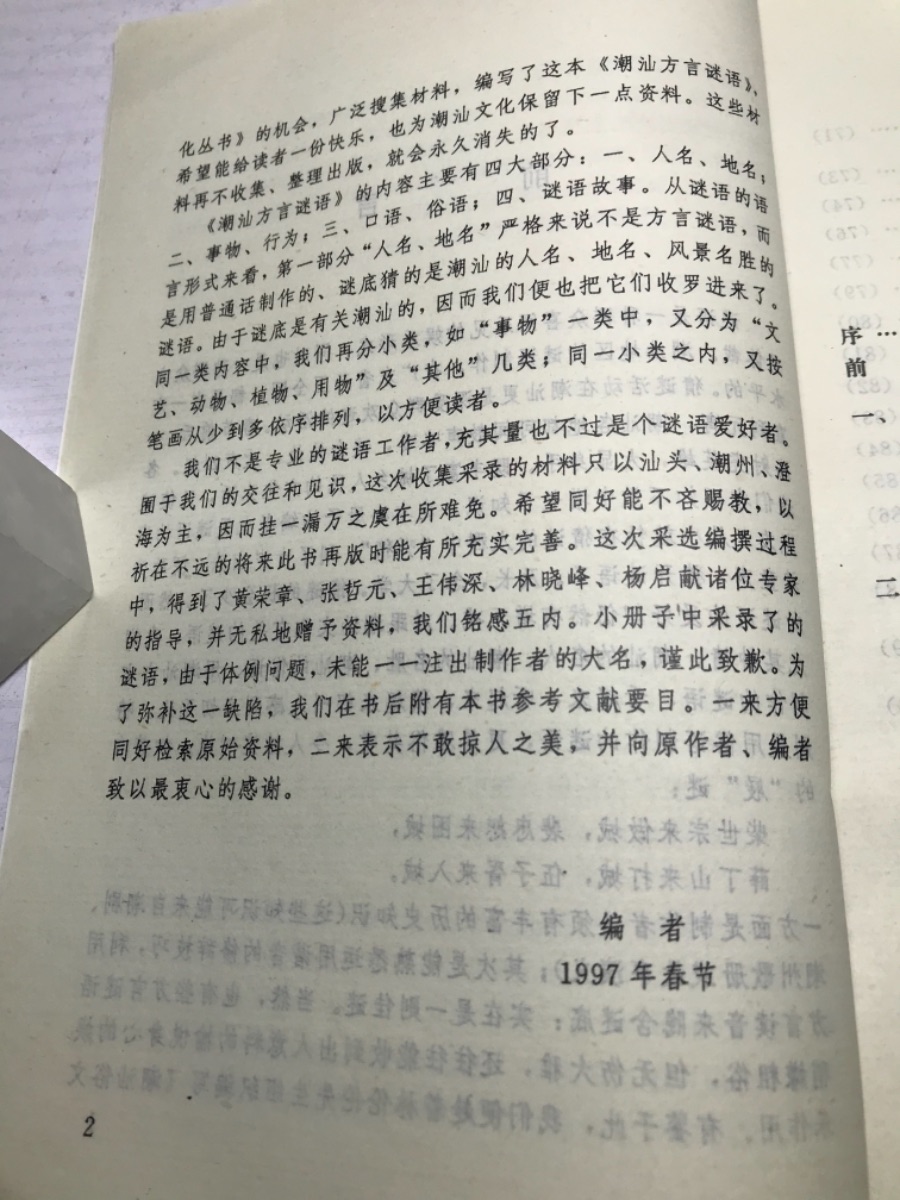 化丛书》的机会，广泛搜集材料，编写了这本《潮汕方言谜语》，
希望能给读者一份快乐，也为潮汕文化保留下一点资料。这些材
料再不收集、整理出版，就会永久消失的了。
《潮汕方言谜语》的内容主要有四大部分：一、人名、地名；
二、事物、行为；三、口语、俗语；四、谜语故事。从谜语的语
言形式来看，第一部分“人名、地名”严格来说不是方言谜语，而
是用普通话制作的、谜底猜的是潮汕的人名、地名、风景名胜的
谜语。由于谜底是有关潮汕的，因而我们便也把它们收罗进来了。
同一类内容中，我们再分小类，如“事物”一类中，又分为“文
艺、动物、植物、用物”及“其他”几类；同一小类之内，又按
笔画从少到多依序排列，以方便读者。
我们不是专业的谜语工作者，充其量也不过是个谜语爱好者。
囿于我们的交往和见识，这次收集采录的材料只以汕头、潮州、澄
海为主，因而挂一漏万之虞在所难免。希望同好能不吝赐教，以
祈在不远的将来此书再版时能有所充实完善。这次采选编撰过程
中，得到了黄荣章、张哲元、王伟深、林晓峰、杨启献诸位专家
的指导，并无私地赠予资料，我们铭感五内。小册子中采录了的
谜语，由于体例问题，未能一一注出制作者的大名，谨此致歉。为
了弥补这一缺陷，我们在书后附有本书参考文献要目。一来方便
同好检索原始资料，二来表示不敢掠人之美，并向原作者、编者
致以最衷心的感谢。
编 者
1997年春节
2
序
前
一
二